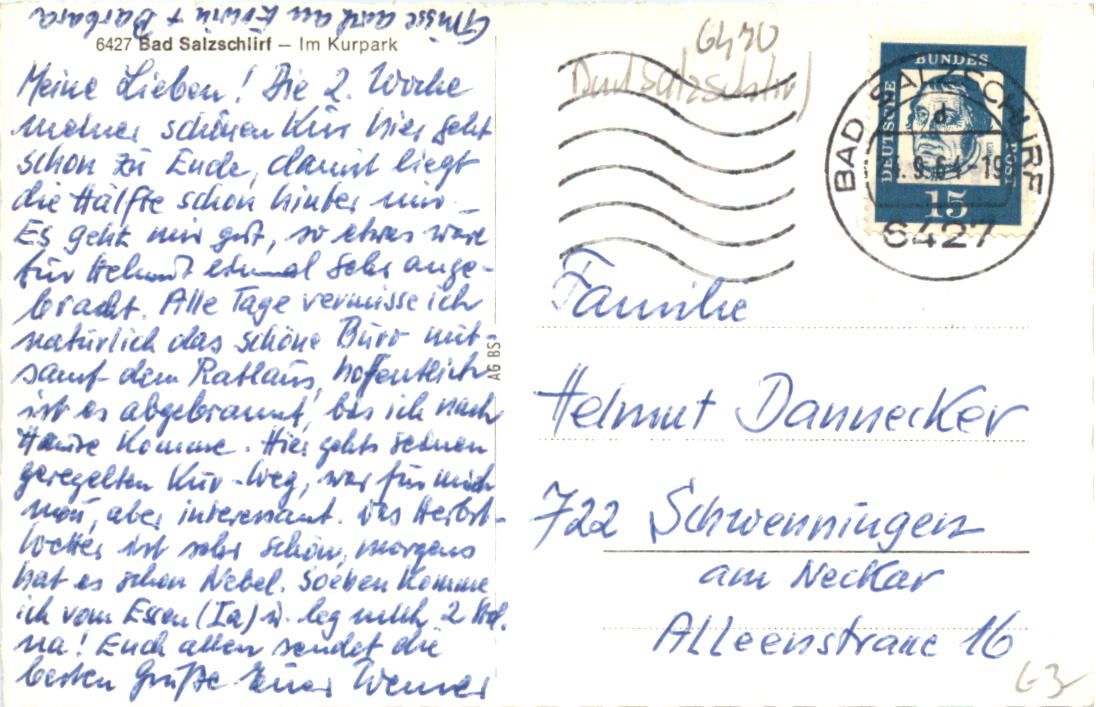 Grüsse auch an Erwin + Barbara
6427 Bad Salzschlirf – Im Kurpark
Meine Lieben! Die 2. Woche
meiner schönen Kur hier geht
schon zu Ende, damit liegt
die Hälfte schon hinter mir.
Es geht mir gut, so etwas wäre
für Helmut einmal sehr ange-
bracht. Alle Tage vermisse ich
natürlich das schöne Büro mit-
samt dem Rathaus, hoffentlich
ist es abgebrannt, bis ich nach
Hause komme. Hier gehts seinen
geregelten Kur-Weg, war für mich
neu, aber interessant. Das Herbst-
wetter ist sehr schön, morgens
hat es schon Nebel. Soeben komme
ich vom Essen (Ia) u. leg mich 2 Std.
na! Euch allen sendet die
besten Grüße Euer Werner
AG BS
6470
Bad Salzschlirf
DEUTSCHE
BUNDES
POST
15
BAD SALZSCHLIRF
d
.9.64. 19
6427
Familie
Helmut Dannecker
722 Schwenningen
am Neckar
Alleenstrasse 16